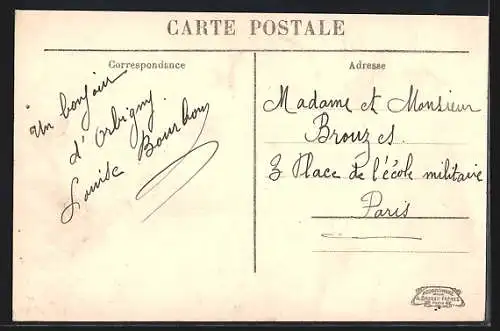 CARTE POSTALE
Correspondance
Adresse
Un bonjour
d'Orbigny
Louise Bourbon
Madame et Monsieur
Brouzes
3 Place de l'école militaire
Paris